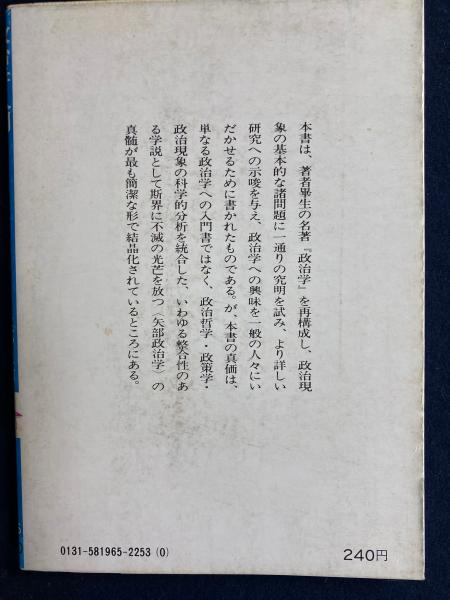 本書は、著者畢生の名著『政治学』を再構成し、政治現
象の基本的な諸問題に一通りの究明を試み、より詳しい
研究への示唆を与え、政治学への興味を一般の人々にい
だかせるために書かれたものである。が、本書の真価は、
単なる政治学への入門書ではなく、政治哲学・政策学・
政治現象の科学的分析を統合した、いわゆる整合性のあ
る学説として斯界に不滅の光芒を放つ〈矢部政治学〉の
真髄が最も簡潔な形で結晶化されているところにある。
0131-581965-2253(0)
240円